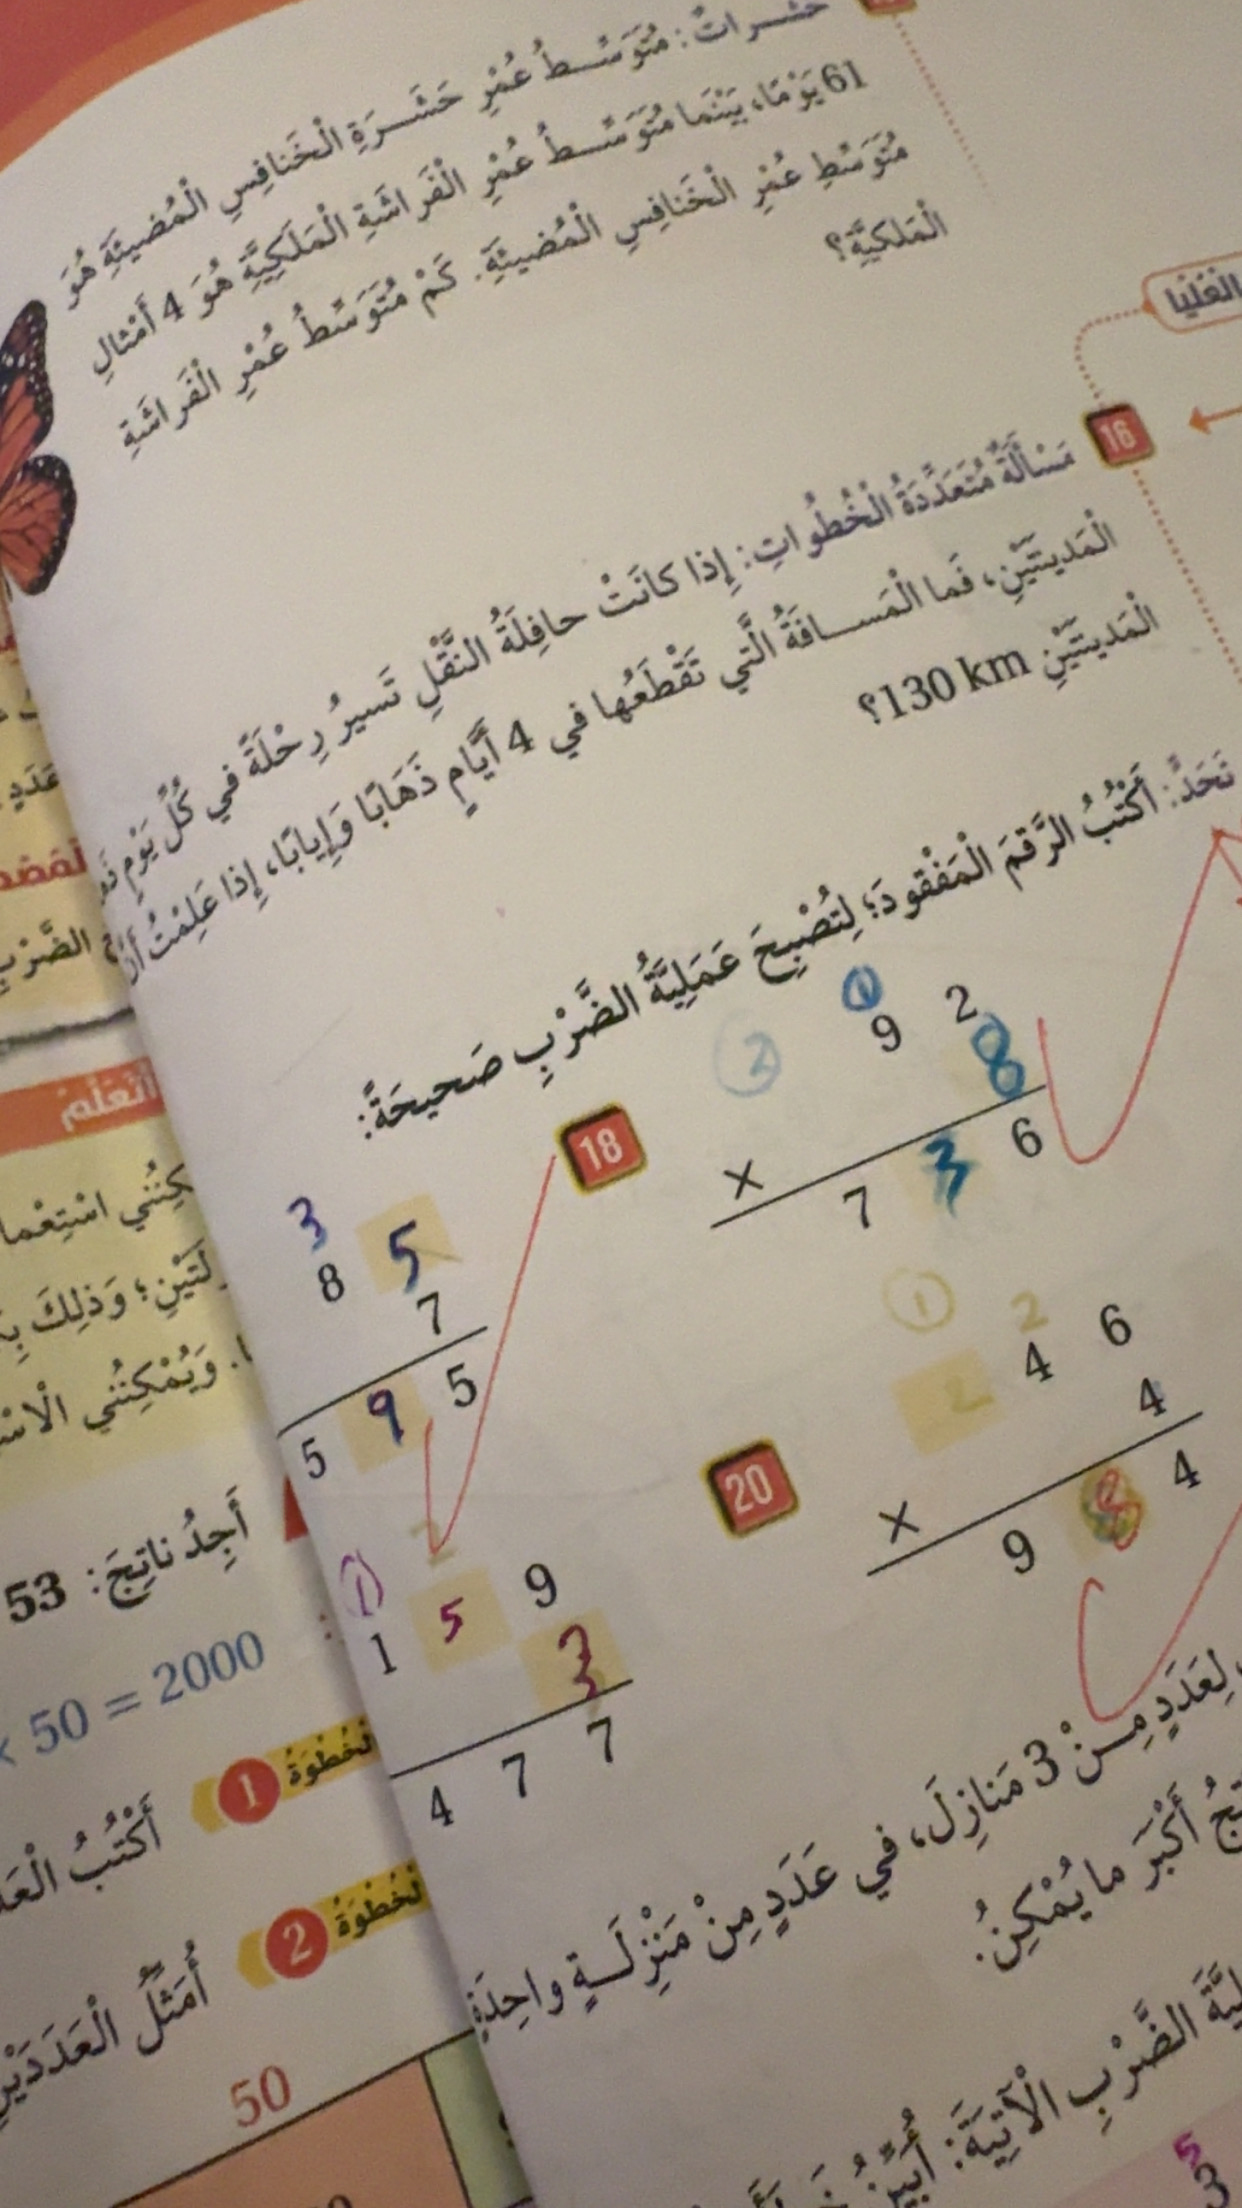 حشرات: مُتَوَسِّطُ عُمْرِ حَشَرَةِ الْخَنافِسِ الْمُضيئَةِ هُوَ
61 يَوْمًا، بَيْنَما مُتَوَسِّطُ عُمْرِ الْفَراشَةِ الْمَلَكِيَّةِ هُوَ 4 أَمْثالِ
مُتَوَسِّطِ عُمْرِ الْخَنافِسِ الْمُضيئَةِ. كَمْ مُتَوَسِّطُ عُمْرِ الْفَراشَةِ
الْمَلَكِيَّةِ؟
الْعُلْيا
16
مَسْأَلَةٌ مُتَعَدِّدَةُ الْخُطُواتِ: إِذا كانَتْ حافِلَةُ النَّقْلِ تَسيرُ رِحْلَةً في كُلِّ يَوْمٍ
الْمَدينَتَيْنِ، فَما الْمَسافَةُ الَّتي تَقْطَعُها في 4 أَيّامٍ ذَهابًا وَإِيابًا، إِذا عَلِمْتُ أَنَّ
الْمَدينَتَيْنِ 130 km؟
تَحَدٍّ: أَكْتُبُ الرَّقمَ الْمَفْقودَ؛ لِتُصْبِحَ عَمَلِيَّةُ الضَّرْبِ صَحيحَةً:
① ②
9 2
8
×
7 3 6
18
3
8 5
7
5 9 5
① 2
2 4 6
4
×
9 8 4
20
① 2
1 5 9
3
4 7 7
لِعَدَدٍ مِنْ 3 مَنازِلَ، في عَدَدٍ مِنْ مَنْزِلَةٍ واحِدَةٍ
أَكْبَرَ ما يُمْكِنُ.
الضَّرْبِ الْآتِيَةَ: أُبَيِّنُ
5
عَدَدٍ
الضَّرْبِ
أَتَعَلَّمُ
اسْتِعْما
وَذلِكَ
وَيُمْكِنُني
أَجِدُ ناتِجَ: 53
× 50 = 2000
1
أَكْتُبُ
2
أُمَثِّلُ الْعَدَدَيْنِ
50